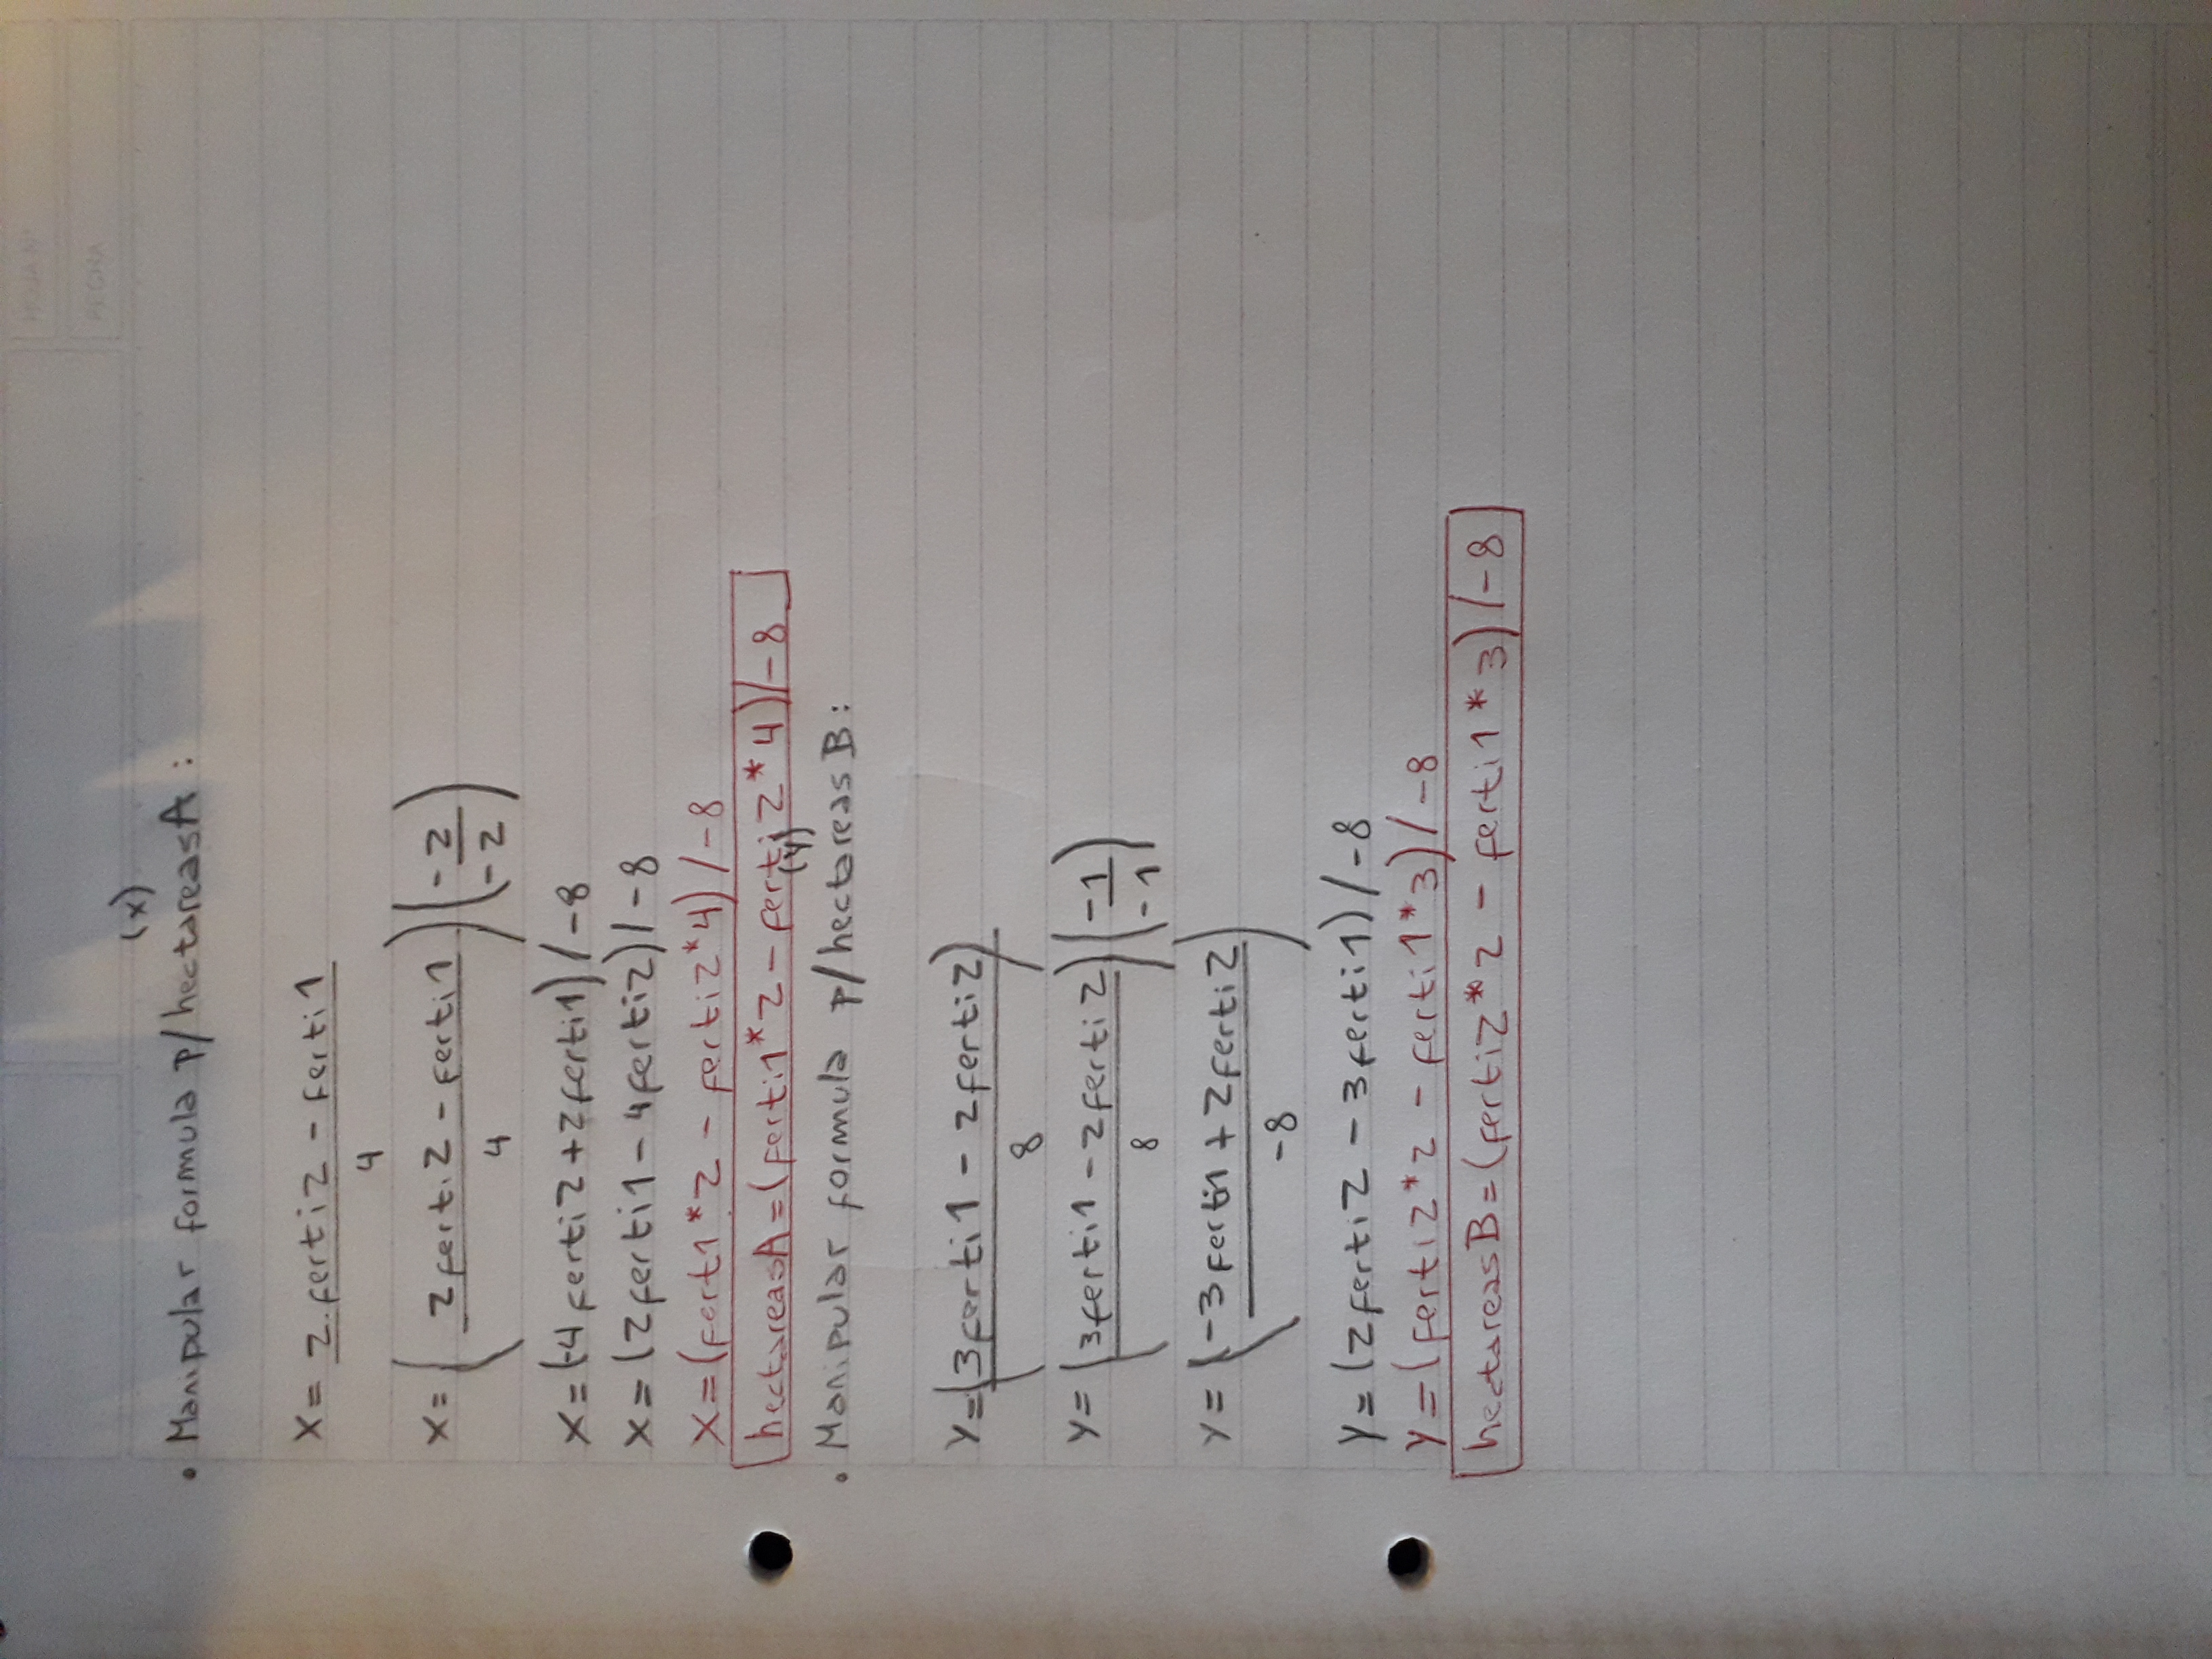 HOJA N°
FECHA
(x)
• Manipular formula p/hectareasA:
x = 2.ferti2 - ferti1
4
x = ( 2ferti2 - ferti1 ) ( -2
4 -2 )
x = (-4ferti2 + 2ferti1) / -8
x = (2ferti1 - 4ferti2) / -8
x = (fert1*2 - ferti2*4) / -8
hectareasA = (ferti1*2 - ferti2*4) / -8
(y)
• Manipular formula p/hectareas B:
y = (3ferti1 - 2ferti2)
8
y = (3ferti1 - 2ferti2) ( -1
8 -1 )
y = ( -3ferti1 + 2ferti2 )
-8
y = (2ferti2 - 3ferti1) / -8
y = (ferti2*2 - ferti1*3) / -8
hectareasB = (ferti2*2 - ferti1*3) / -8